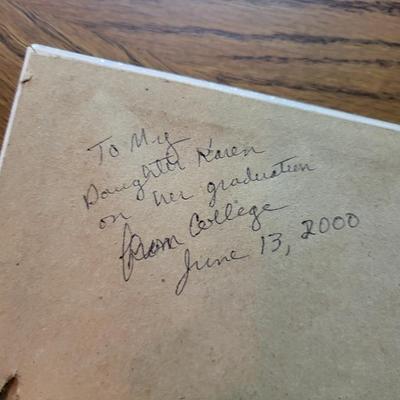 To My
Daughter Karen
on her graduation
from College
June 13, 2000